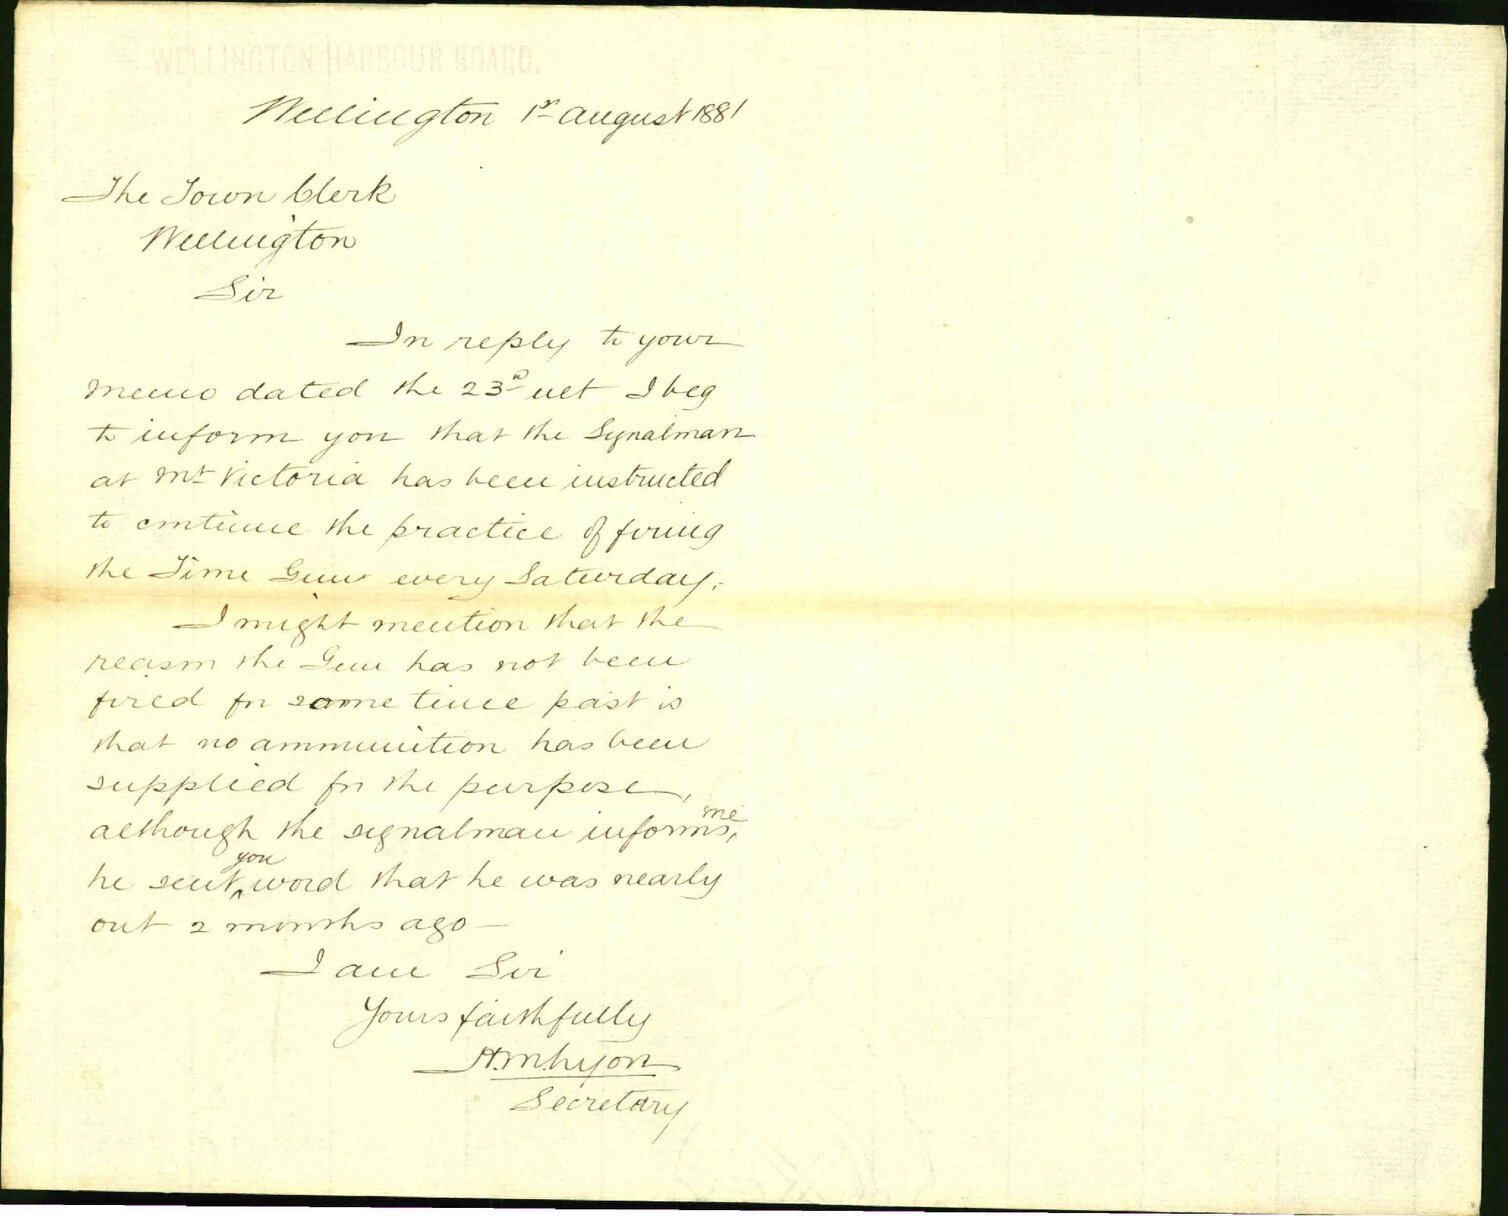 WELLINGTON HARBOUR BOARD.
Wellington 1st August 1881
The Town Clerk
Wellington
Sir
In reply to your
memo dated the 23rd ult I beg
to inform you that the Signalman
at Mt Victoria has been instructed
to continue the practice of firing
the Time Gun every Saturday.
I might mention that the
reason the Gun has not been
fired for some time past is
that no ammunition has been
supplied for the purpose,
although the signalman informs me,
he sent you word that he was nearly
out 2 months ago —
I am Sir
Yours faithfully
H.M. Lyon
Secretary